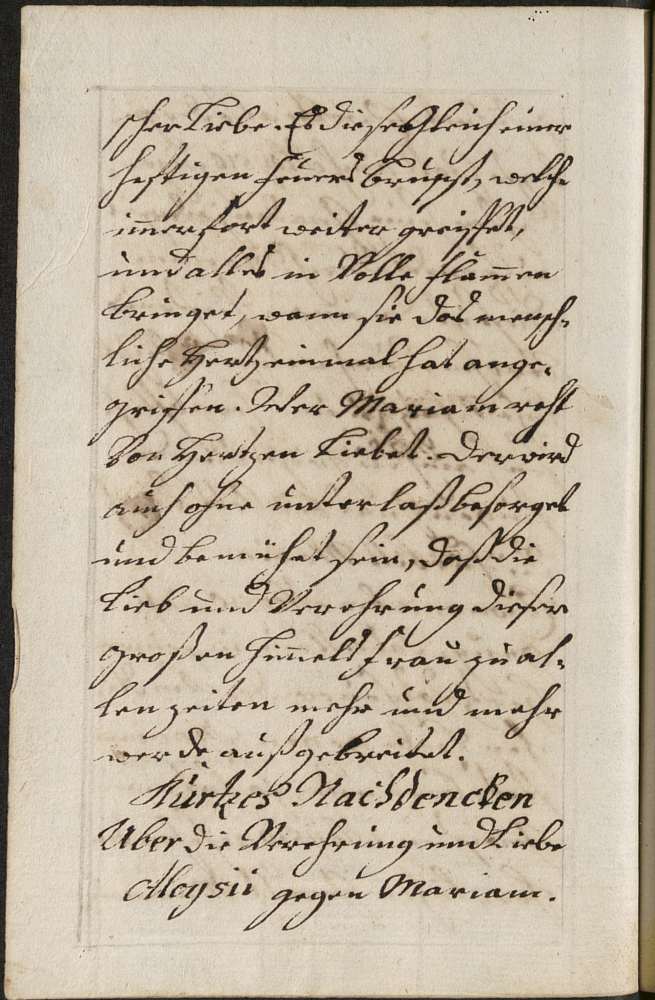 scher Liebe. Es diese gleich einer
hefftigen feuers brunst, welche
immerfort weiter greiffet,
und alles in Volle flam̄en
bringet, wann sie das mensch-
liche Hertz einmal hat ange-
griffen. Wer Mariam recht
Von Hertzen Liebet. Der wird
auch ohne unterlaß besorget
und bemühet sein, daß die
Lieb und Verehrung dieser
großen Him̄els frau zu al-
len zeiten mehr und mehr
werde außgebreitet.
Kurtzes Nachdencken
Uber die Verehrung und Liebe
Aloysii gegen Mariam.